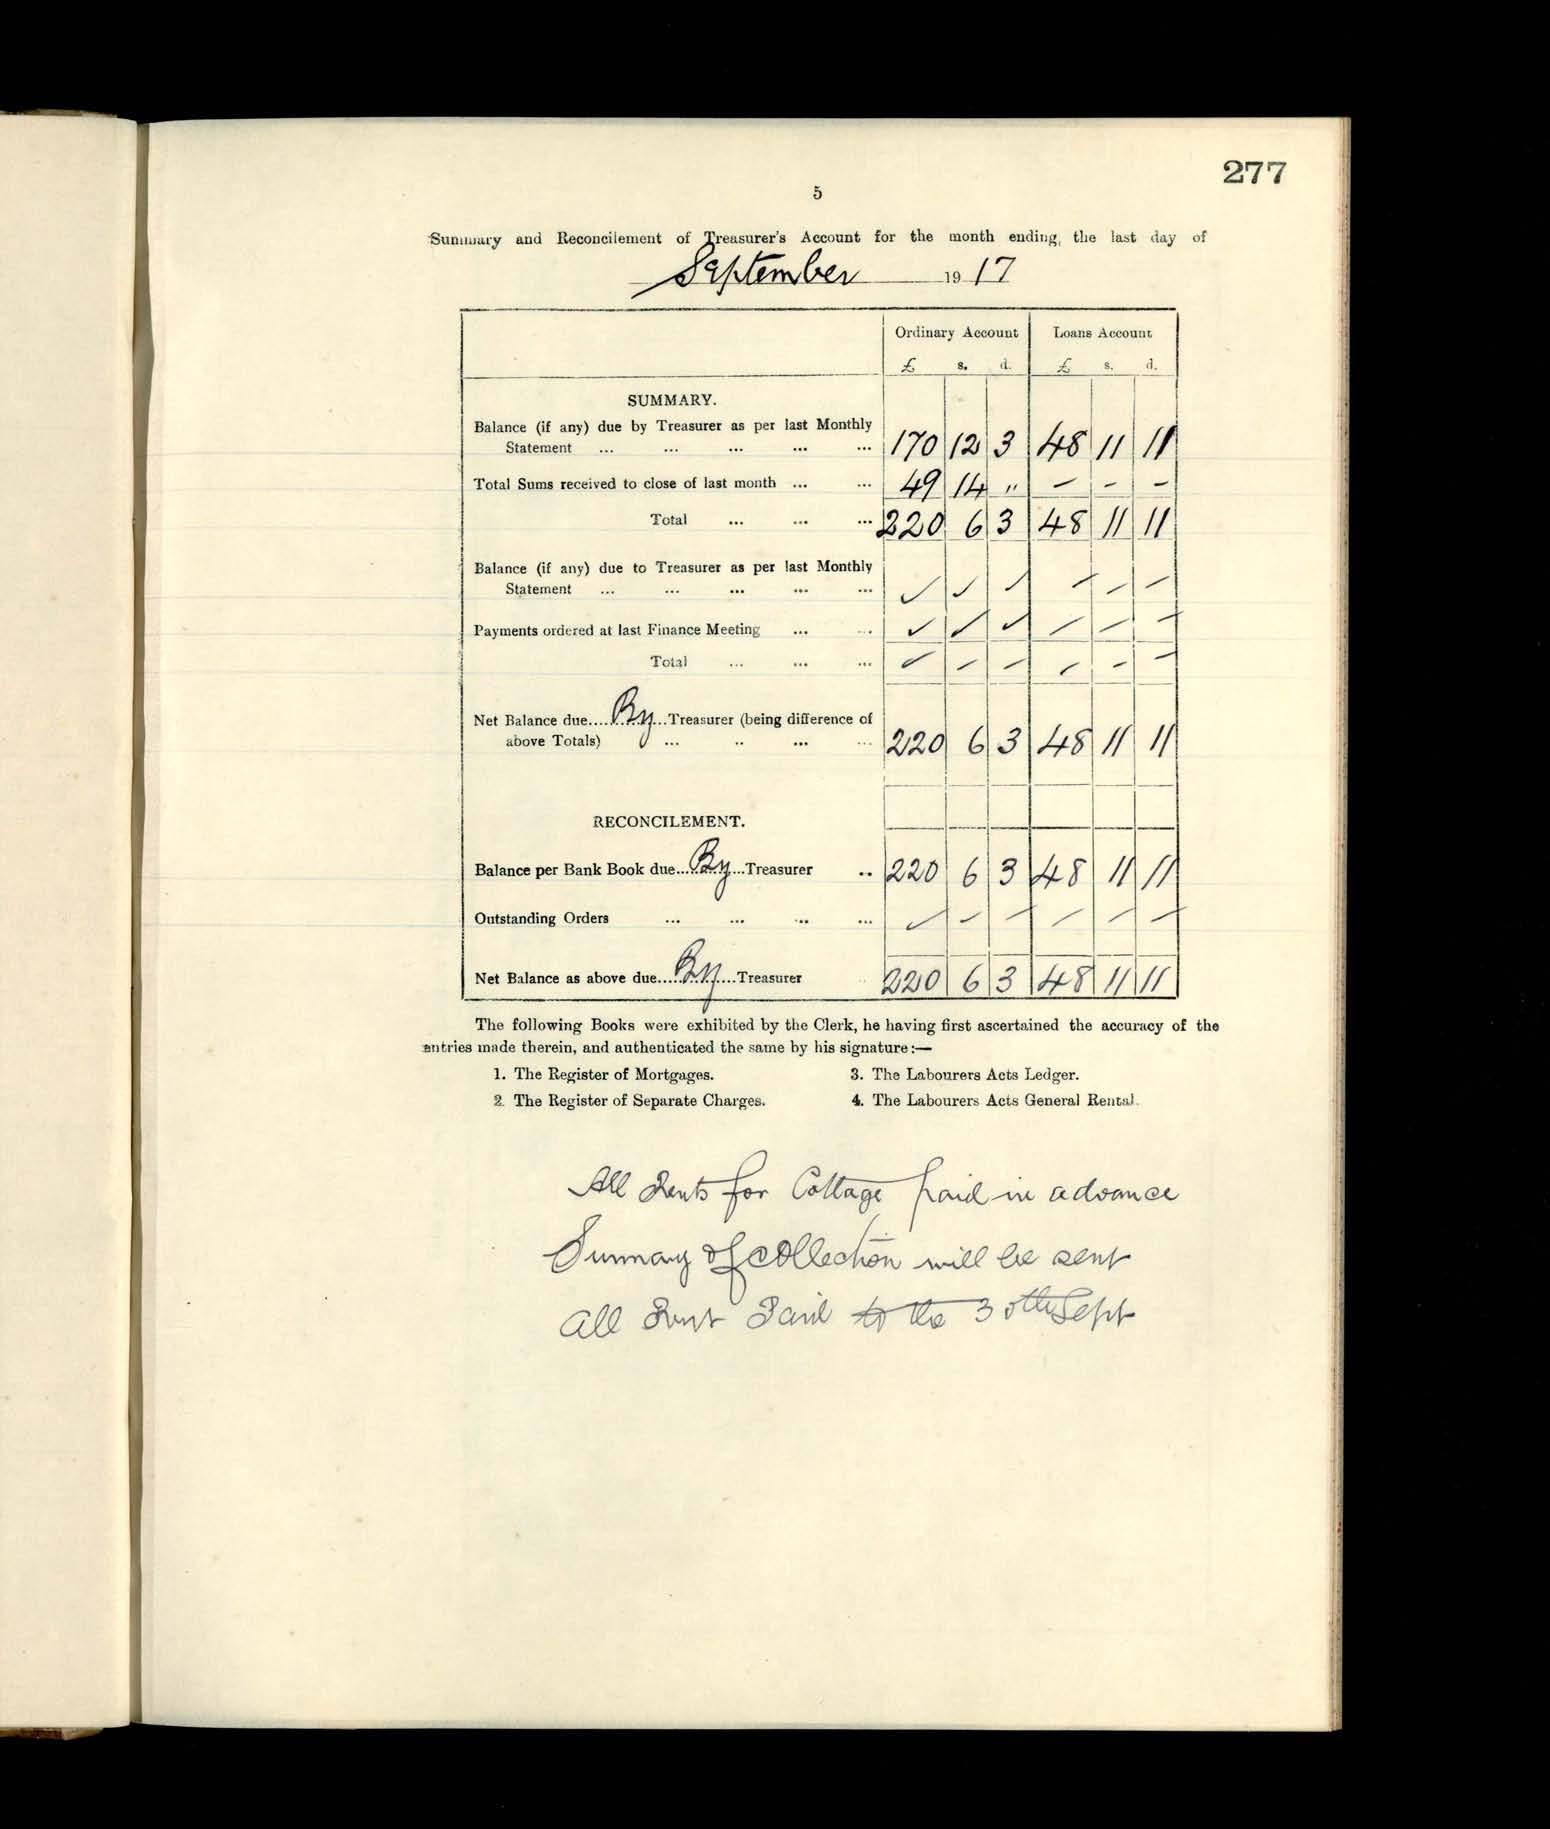 277
5
Summary and Reconcilement of Treasurer's Account for the month ending, the last day of
September 1917
Ordinary Account Loans Account
£ s. d. £ s. d.
SUMMARY.
Balance (if any) due by Treasurer as per last Monthly
Statement ... ... ... ... ... 170 12 3 48 11 11
Total Sums received to close of last month ... ... 49 14 " – – –
Total ... ... ... 220 6 3 48 11 11
Balance (if any) due to Treasurer as per last Monthly
Statement ... ... ... ... ... ✓ ✓ ✓ – – –
Payments ordered at last Finance Meeting ... ... ✓ ✓ ✓ – – –
Total ... ... ... ✓ – – – – –
Net Balance due....By...Treasurer (being difference of
above Totals) ... .. ... ... 220 6 3 48 11 11
RECONCILEMENT.
Balance per Bank Book due....By...Treasurer .. 220 6 3 48 11 11
Outstanding Orders ... ... ... ... ✓ – – – – –
Net Balance as above due....By....Treasurer 220 6 3 48 11 11
The following Books were exhibited by the Clerk, he having first ascertained the accuracy of the
entries made therein, and authenticated the same by his signature:—
1. The Register of Mortgages. 3. The Labourers Acts Ledger.
2. The Register of Separate Charges. 4. The Labourers Acts General Rental.
All Rents for Cottage paid in advance
Summary of collection will be sent
All Rent Paid to the 30th Sept